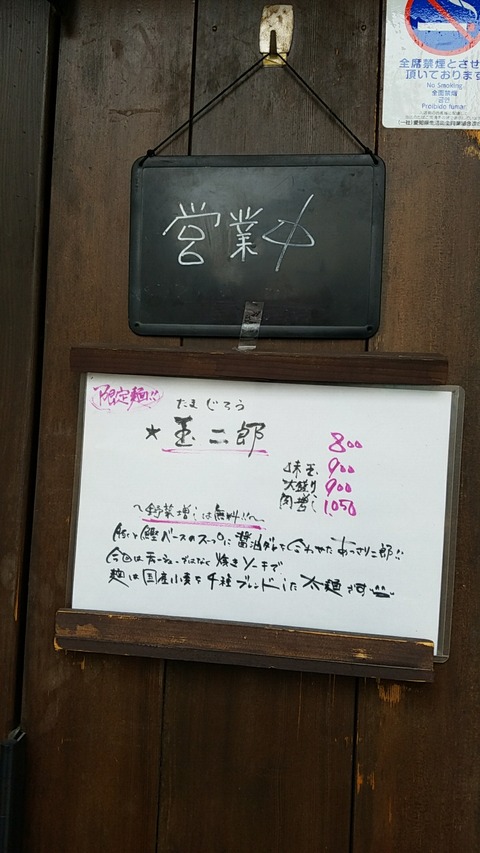 全席禁煙とさせ
頂いております
No Smoking
全面禁煙
Proibido fumar
営業中
限定麺!!
たまじろう
★玉二郎
800
味玉 900
大盛り 900
肉増し 1,050
〜野菜増しは無料!!〜
豚と鰹ベースのスープに醤油ダレを合わせたあっさり二郎!!
今回はチャーシューではなく焼きソーキで
麺は国産小麦を4種ブレンドした太麺です